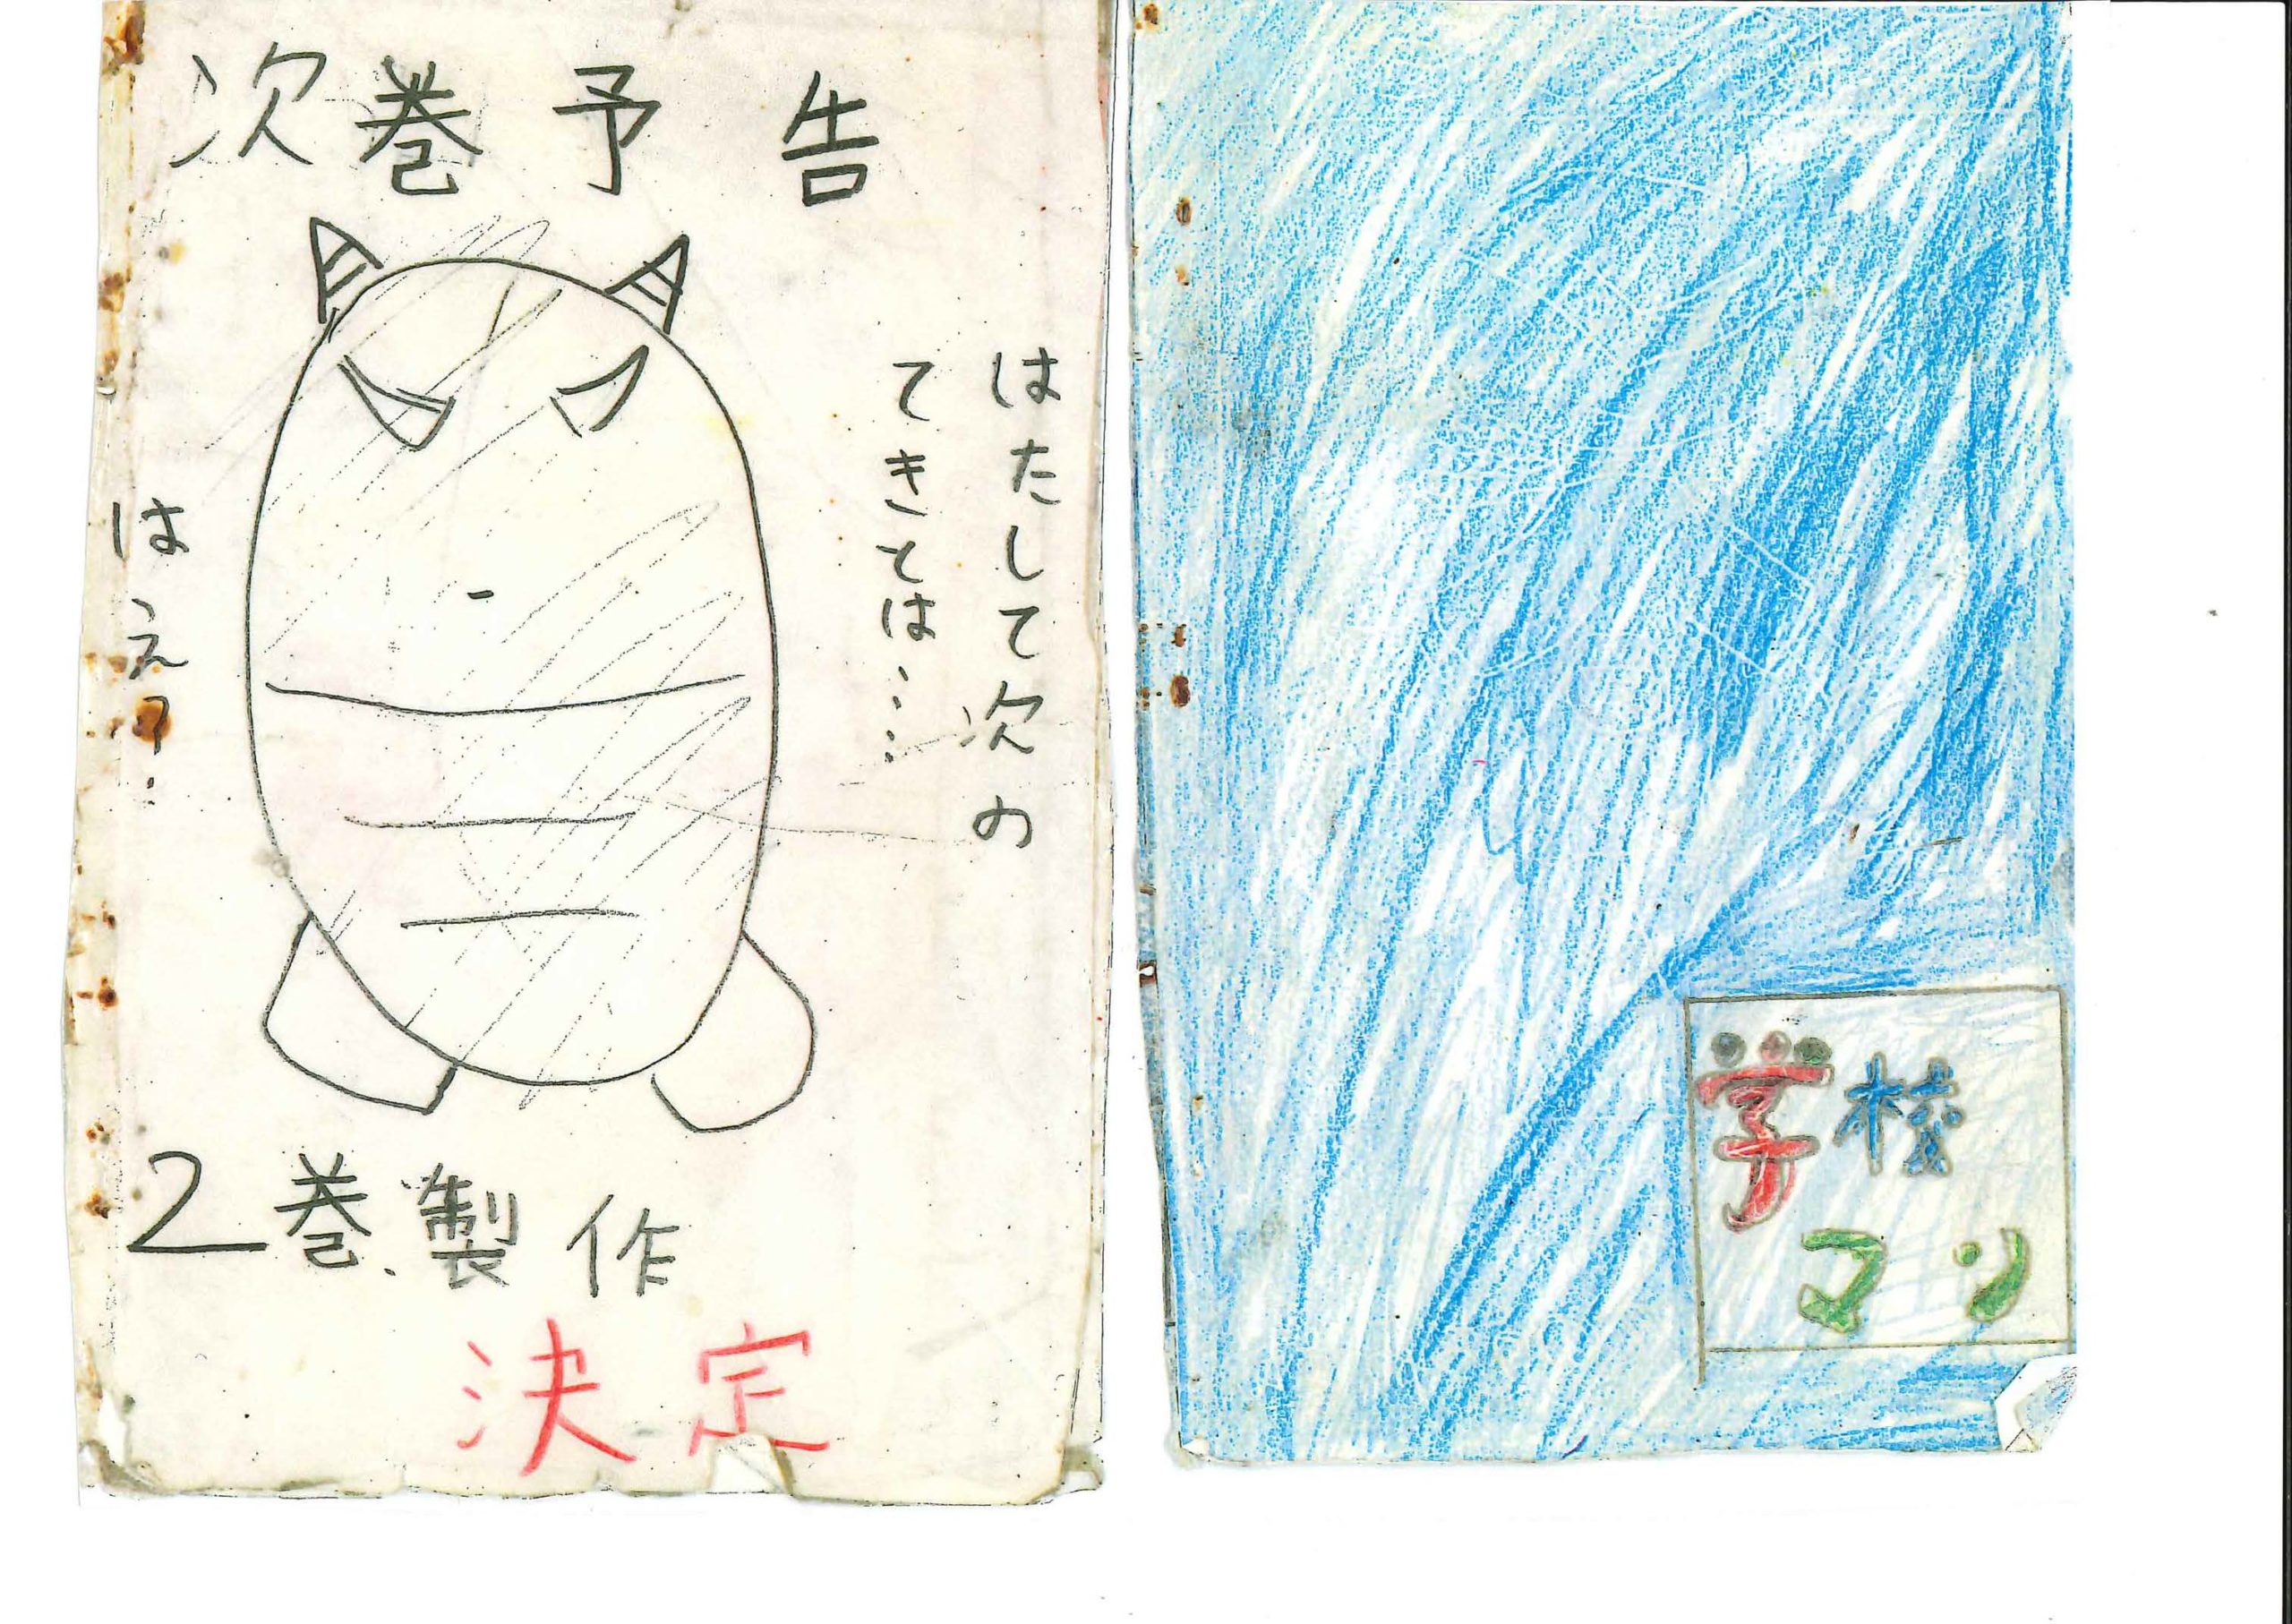 次巻予告
はたして次の
てきとは……
はえ?
2巻製作
決定
学校
マン